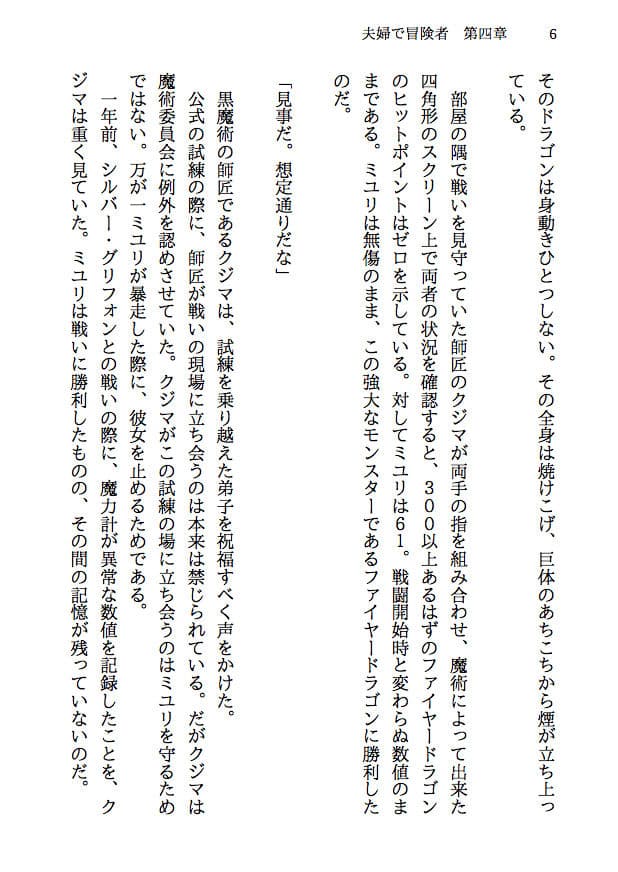 夫婦で冒険者　第四章　6
そのドラゴンは身動きひとつしない。その全身は焼けこげ、巨体のあちこちから煙が立ち上っ
ている。
　部屋の隅で戦いを見守っていた師匠のクジマが両手の指を組み合わせ、魔術によって出来た
四角形のスクリーン上で両者の状況を確認すると、３００以上あるはずのファイヤードラゴン
のヒットポイントはゼロを示している。対してミユリは６１。戦闘開始時と変わらぬ数値のま
まである。ミユリは無傷のまま、この強大なモンスターであるファイヤードラゴンに勝利した
のだ。
「見事だ。想定通りだな」
　黒魔術の師匠であるクジマは、試練を乗り越えた弟子を祝福すべく声をかけた。
　公式の試練の際に、師匠が戦いの現場に立ち会うのは本来は禁じられている。だがクジマは
魔術委員会に例外を認めさせていた。クジマがこの試練の場に立ち会うのはミユリを守るため
ではない。万が一ミユリが暴走した際に、彼女を止めるためである。
　一年前、シルバー・グリフォンとの戦いの際に、魔力計が異常な数値を記録したことを、ク
ジマは重く見ていた。ミユリは戦いに勝利したものの、その間の記憶が残っていないのだ。